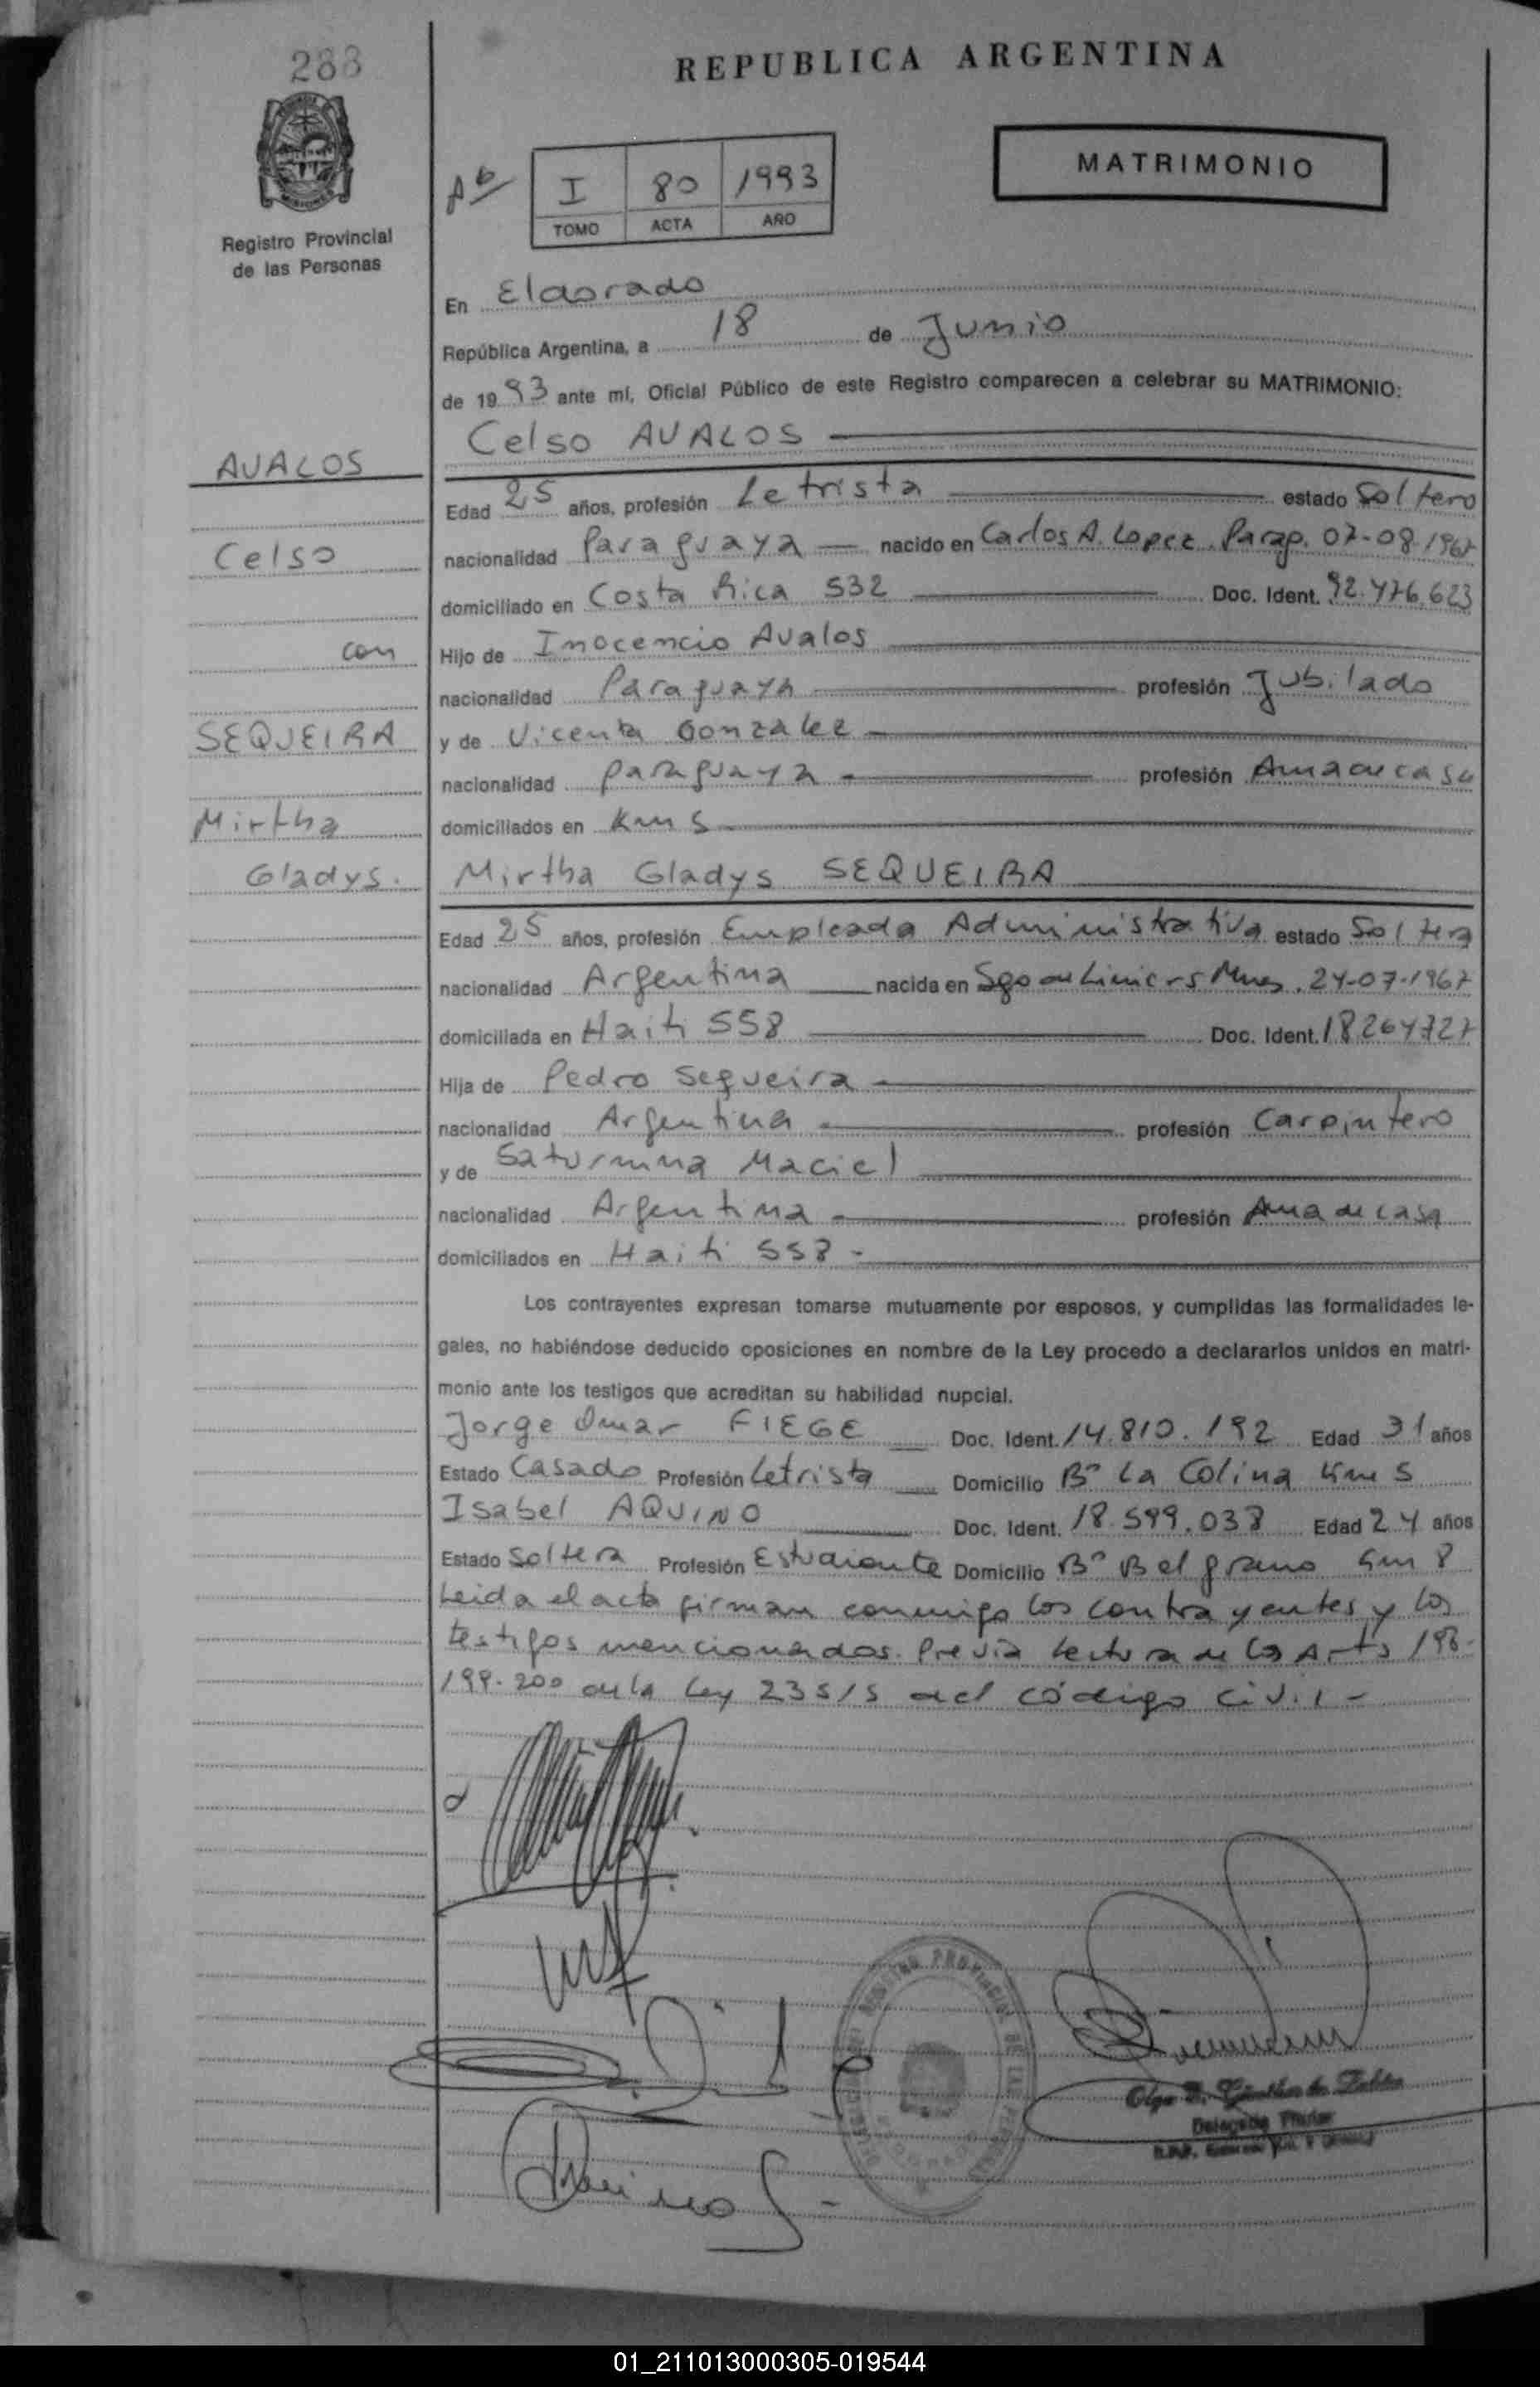 283
REPUBLICA ARGENTINA
MATRIMONIO
I 80 1993
TOMO ACTA AÑO
Registro Provincial
de las Personas
En Eldorado
República Argentina, a 18 de Junio
de 1993 ante mí, Oficial Público de este Registro comparecen a celebrar su MATRIMONIO:
Celso AVALOS
AVALOS
Edad 25 años, profesión Letrista estado Soltero
Celso
nacionalidad Paraguaya nacido en Carlos A. Lopez. Parag. 07-08-1967
domiciliado en Costa Rica 532 Doc. Ident. 92.476.623
con
Hijo de Inocencio Avalos
nacionalidad Paraguaya profesión Jubilado
SEQUEIRA
y de Vicenta Gonzalez
nacionalidad paraguaya profesión Ama de casa
Mirtha
domiciliados en Km 5
Gladys.
Mirtha Gladys SEQUEIRA
Edad 25 años, profesión Empleada Administrativa estado Soltera
nacionalidad Argentina nacida en Sgo de Liniers Mnes. 24-07-1967
domiciliada en Haiti 558 Doc. Ident. 18264727
Hija de Pedro Sequeira
nacionalidad Argentina profesión Carpintero
y de Saturnina Maciel
nacionalidad Argentina profesión Ama de casa
domiciliados en Haiti 558 -
Los contrayentes expresan tomarse mutuamente por esposos, y cumplidas las formalidades le-
gales, no habiéndose deducido oposiciones en nombre de la Ley procedo a declararlos unidos en matri-
monio ante los testigos que acreditan su habilidad nupcial.
Jorge Omar FIEGE Doc. Ident. 14.810.192 Edad 31 años
Estado Casado Profesión Letrista Domicilio Bº La Colina Km 5
Isabel AQUINO Doc. Ident. 18.599.038 Edad 24 años
Estado Soltera Profesión Estudiante Domicilio Bº Belgrano Km 8
Leida el acta firman conmigo los contrayentes y los
testigos mencionados. Previa lectura de los Arts 198-
199-200 de la Ley 23515 del código civil -
REGISTRO PROVINCIAL DE LAS PERSONAS
Delegada Titular
01_211013000305-019544